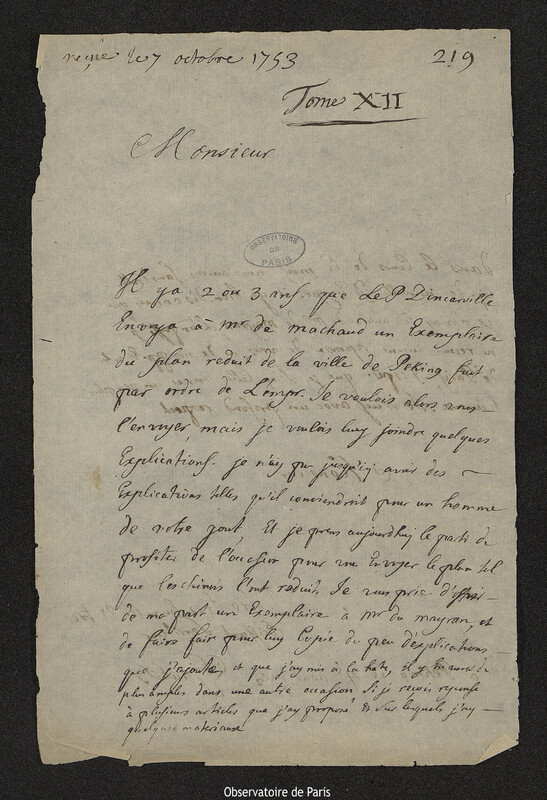 reçüe le 7 octobre 1753
219
Tome XII
Monsieur
OBSERVATOIRE
DE
PARIS
Il y a 2 ou 3 ans que Le P Dincarville
Envoya à mr de machaud un Exemplaire
du plan reduit de la ville de Peking fait
par ordre de L'empr. Je voulois alors vous
l'envoyer, mais je voulois luy joindre quelques
Explications. je n'ay pu jusqu'icy avoir des
Explications telles qu'il conviendroit pour un homme
de votre gout, Et je prens aujourdhuy le parti de
profiter de l'occasion pour vous Envoyer le plan tel
que les chinois l'ont reduit. Je vous prie d'offrir
de ma part un Exemplaire à mr du mayran, et
de faire fair pour luy Copie du peu d'explications
que j'ajoute, et que j'ay mis à la hate, il y en aura de
plus amples dans une autre occasion si je reçois reponse
à plusieurs articles que j'ay proposé Et sur lesquels j'ay
quelques materiaux
Observatoire de Paris